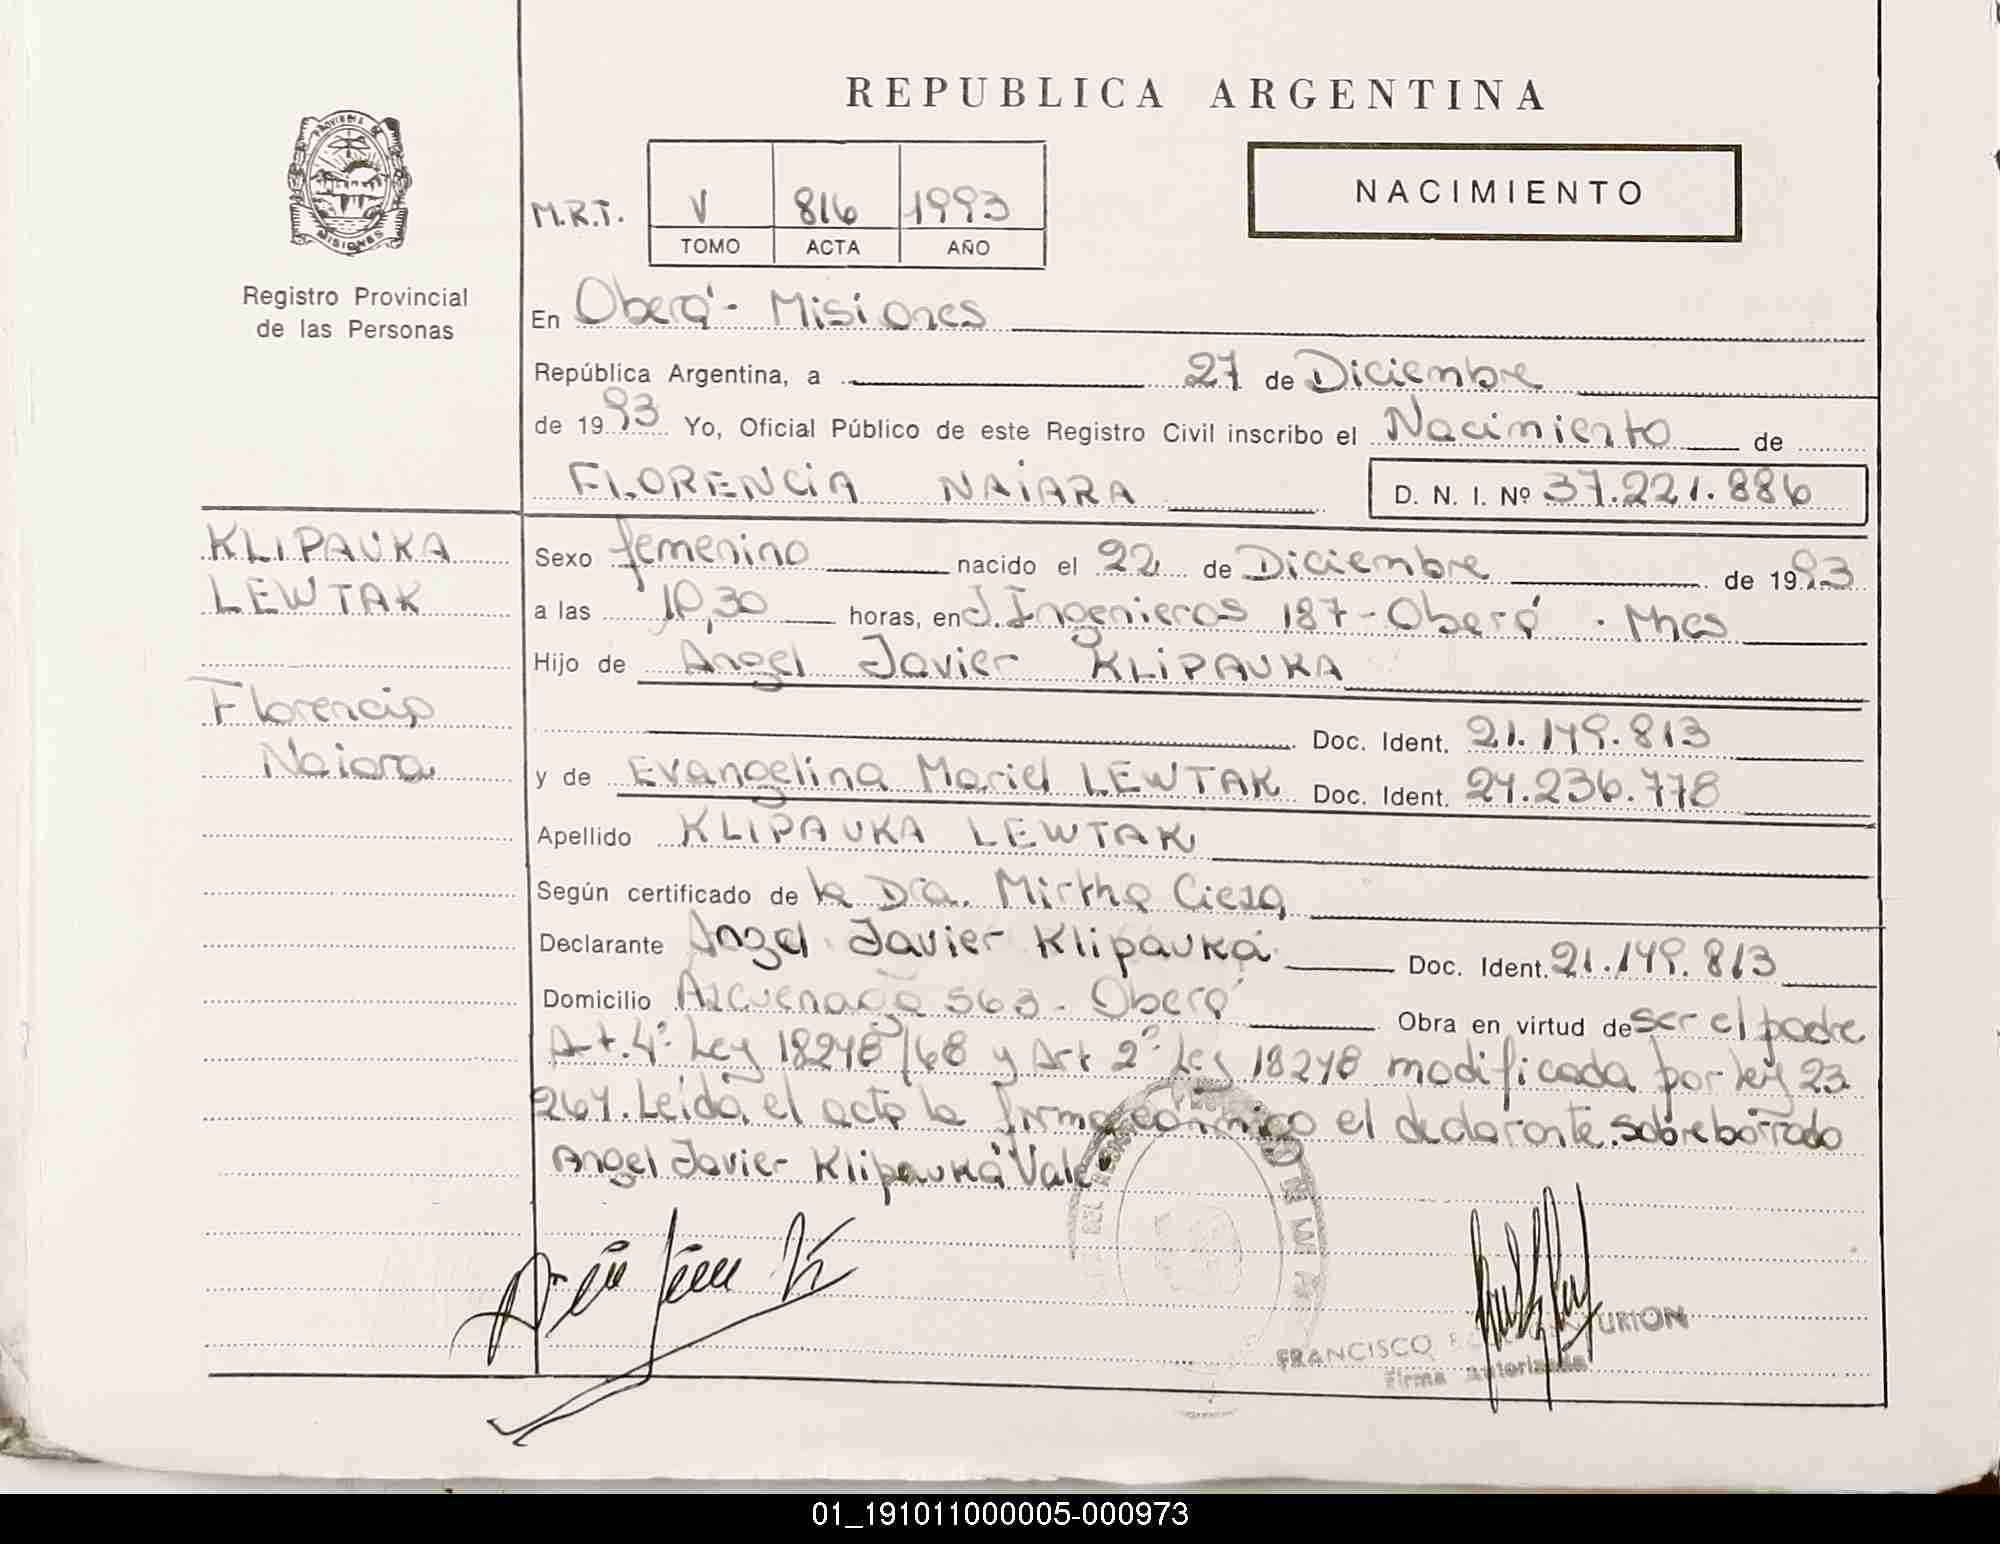 REPUBLICA ARGENTINA
NACIMIENTO
PROVINCIA DE
MISIONES
Registro Provincial
de las Personas
M.R.T. V 816 1993
TOMO ACTA AÑO
En Oberá - Misiones
República Argentina, a 27 de Diciembre
de 1993 Yo, Oficial Público de este Registro Civil inscribo el Nacimiento de
FLORENCIA NAIARA D. N. I. Nº 37.221.886
KLIPAUKA
LEWTAK
Florencia
Naiara
Sexo femenino nacido el 22 de Diciembre de 1993
a las 10,30 horas, en J. Ingenieros 187 - Oberá - Mnes
Hijo de Angel Javier KLIPAUKA
Doc. Ident. 21.149.813
y de Evangelina Mariel LEWTAK Doc. Ident. 24.236.778
Apellido KLIPAUKA LEWTAK
Según certificado de la Dra. Mirtha Cieza
Declarante Angel Javier Klipauka Doc. Ident. 21.149.813
Domicilio Azcuenaga 563 - Oberá Obra en virtud de ser el padre
Art. 4º Ley 18248/68 y Art 2º Ley 18248 modificada por ley 23
264. Leida el acta la firma conmigo el declarante. Sobreborrado
"Angel Javier Klipauka" Vale
FRANCISCO
Firma Autorizada
01_191011000005-000973